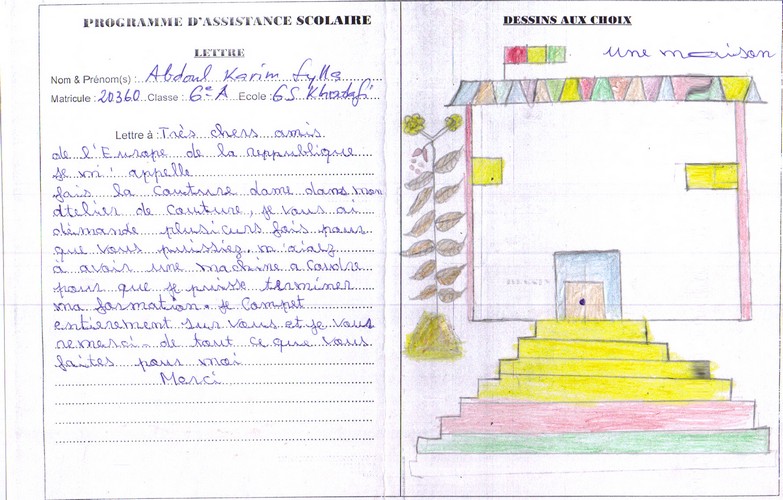 PROGRAMME D'ASSISTANCE SCOLAIRE
LETTRE
Nom & Prénom(s) : Abdoul Karim Sylla
Matricule : 20360 Classe : 6e A Ecole : GS Khadafi
Lettre à : Très chers amis
de l'Europe de la reppublique
je m'appelle
fais la Couture dame dans mon
atelier de Couture, je vous ai
démande plusieurs fois pour
que vous puissiez m'aidez
à avoir une machine a Coudre
pour que je puisse terminer
ma formation. je Compet
entièrement sur vous et je vous
remerci de tout ce que vous
faites pour moi
Merci
DESSINS AUX CHOIX
une maison